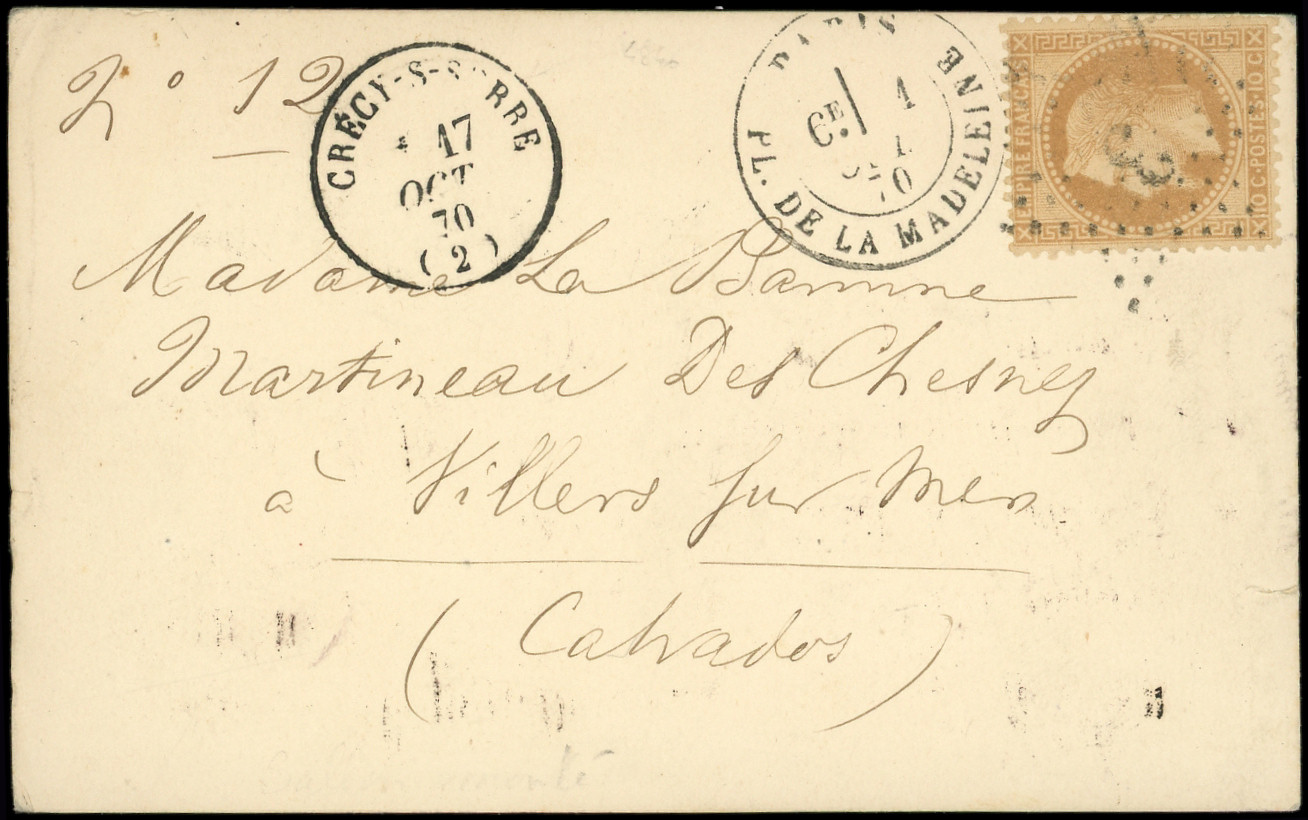 N° 12
CRÉCY-S-SERRE
17
OCT
70
(2)
PARIS
CE 1
70
PL. DE LA MADELEINE
EMPIRE FRANCAIS
10 C. POSTES. 10 C.
Madame La Baronne
Martineau Des Chesnez
à Villers sur Mer
(Calvados)
Ballon monté